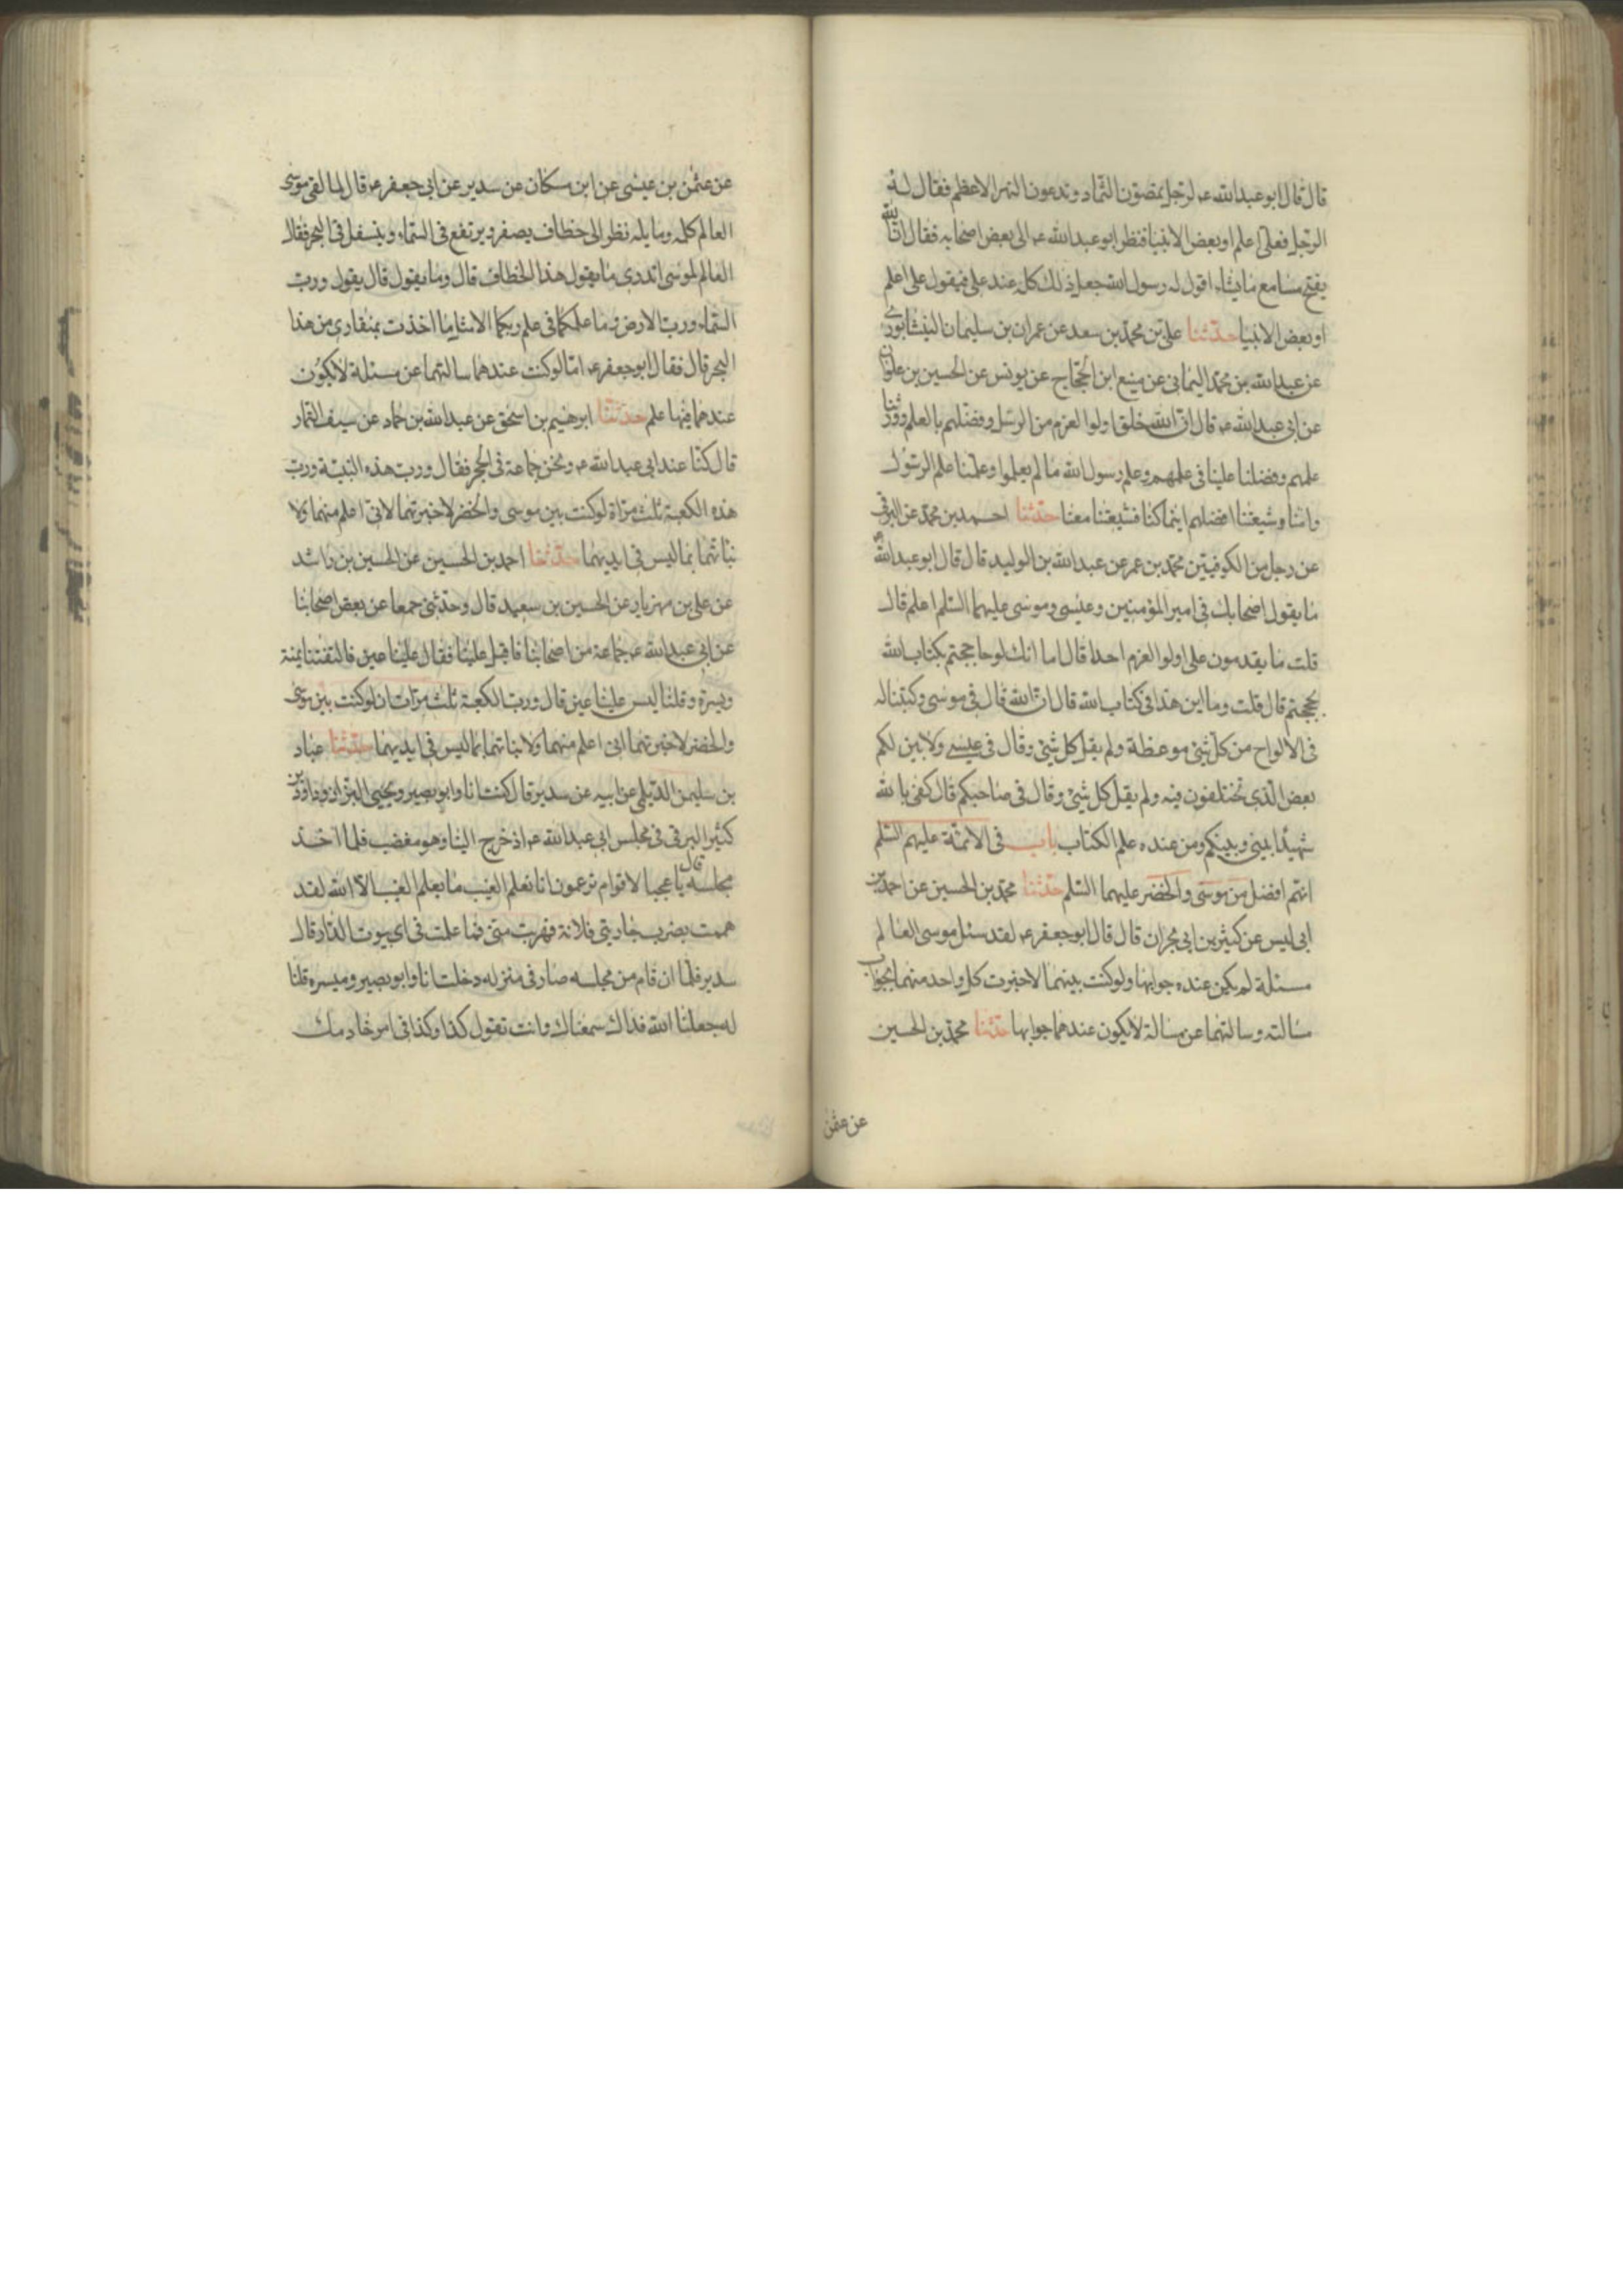 قال قال ابو عبد الله عه لرجل يمضون الثماد وتدعون النهر الاعظم فقال له
الرجل فعلى اعلم او بعض الانبيا فنظر ابو عبد الله عه الى بعض اصحابه فقال ان الله
يفتح مسامع ما يشاء اقول له رسول الله جعل ذلك كله عند على فيقول على اعلم
او بعض الانبيا حدثنا على بن محمد بن سعد عن عمران بن سليمان النيشابورى
عن عبد الله بن محمد اليمانى عن منيع ابن الحجاج عن يونس عن الحسين بن علوان
عن ابى عبد الله عه قال ان الله خلق اولوا العزم من الرسل وفضلهم بالعلم وورثنا
علمهم وفضلنا علينا فى علمهم وعلم رسول الله ما لم يعلموا وعلمنا علم الرسول
وامنا وشيعتنا افضلهم اينما كنا فشيعتنا معنا حدثنا احمد بن محمد عن البرقى
عن رجل من الكوفيين محمد بن عمر عن عبد الله بن الوليد قال قال ابو عبد الله عه
ما يقول اصحابك فى امير المؤمنين وعيسى وموسى عليهما السلم اعلم قال
قلت ما يقدمون على اولوا العزم احدا قال اما انك لو حاججتم بكتاب الله
لحججتم قال قلت وما اين هذا فى كتاب الله قال ان الله قال فى موسى وكتبنا له
فى الالواح من كل شئ موعظة ولم يقل كل شئ وقال فى عيسى ولابين لكم
بعض الذى تختلفون فيه ولم يقل كل شئ وقال فى صاحبكم قال كفى بالله
شهيدا بينى وبينكم ومن عنده علم الكتاب باب فى الائمة عليهم السلم
انهم افضل من موسى والخضر عليهما السلم حدثنا محمد بن الحسين عن احمد بن
ابى ليس عن كثير بن ابى مجران قال قال ابو جعفر عه لقد سئل موسى العالم
مسئلة لم يكن عنده جوابها ولو كنت بينهما لاخبرت كل واحد منهما بجواب
مسالته وسالتهما عن مسالة لا يكون عندهما جوابها حدثنا محمد بن الحسين
عن عثمن
عن عثمن بن عيسى عن ابن مسكان عن سدير عن ابى جعفر عه قال لما لقى موسى
العالم كلمه وسايله نظر الى خطاف يصفر ويرتفع فى السماء ويتسفل فى البحر فقال
العالم لموسى اتدرى ما يقول هذا الخطاف قال وما يقول قال يقول ورب
السماء ورب الارض ما علمكما فى علم ربكما الا مثل ما اخذت بمنقارى من هذا
البحر قال فقال ابو جعفر عه اما لو كنت عندهما سالتهما عن مسئلة لا يكون
عندهما فيها علم حدثنا ابرهيم بن اسحق عن عبد الله بن حماد عن سيف التمار
قال كنا عند ابى عبد الله عه ونحن جماعة فى الحجر فقال ورب هذه البنية ورب
هذه الكعبة ثلث مراة لو كنت بين موسى والخضر لاخبرتهما لانى اعلم منهما ولا
نباتهما بما ليس فى ايديهما حدثنا احمد بن الحسين عن الحسين بن راشد
عن على بن مهزيار عن الحسين بن سعيد قال وحدثنى جمعا عن بعض اصحابنا
عن ابى عبد الله عه جماعة من اصحابنا فاقبل علينا فقال علينا عين فالتفتنا يمنة
ويسرة وقلنا ليس علينا عين قال ورب الكعبة ثلث مرات ان لو كنت بين موسى
والخضر لاخبرتهما انى اعلم منهما ولانباتهما بما ليس فى ايديهما حدثنا عباد
بن سليمن الديلى عن ابيه عن سدير قال كنت انا وابو بصير ويحيى البزاز وداود بن
كثير البرقى فى مجلس ابى عبد الله عه اذ خرج الينا وهو مغضب فلما اخذ
مجلسه قال يا عجبا لاقوام يزعمون انا نعلم الغيب ما يعلم الغيب الا الله لقد
هممت بضرب جاريتى فلانة فهربت منى فما علمت فى اى بيوت الدار قال
سدير فلما ان قام من مجلسه صار فى منزله دخلت انا وابو بصير وميسره قلنا
له جعلنا الله فداك سمعناك وانت تقول كذا وكذا فى امر خادمك